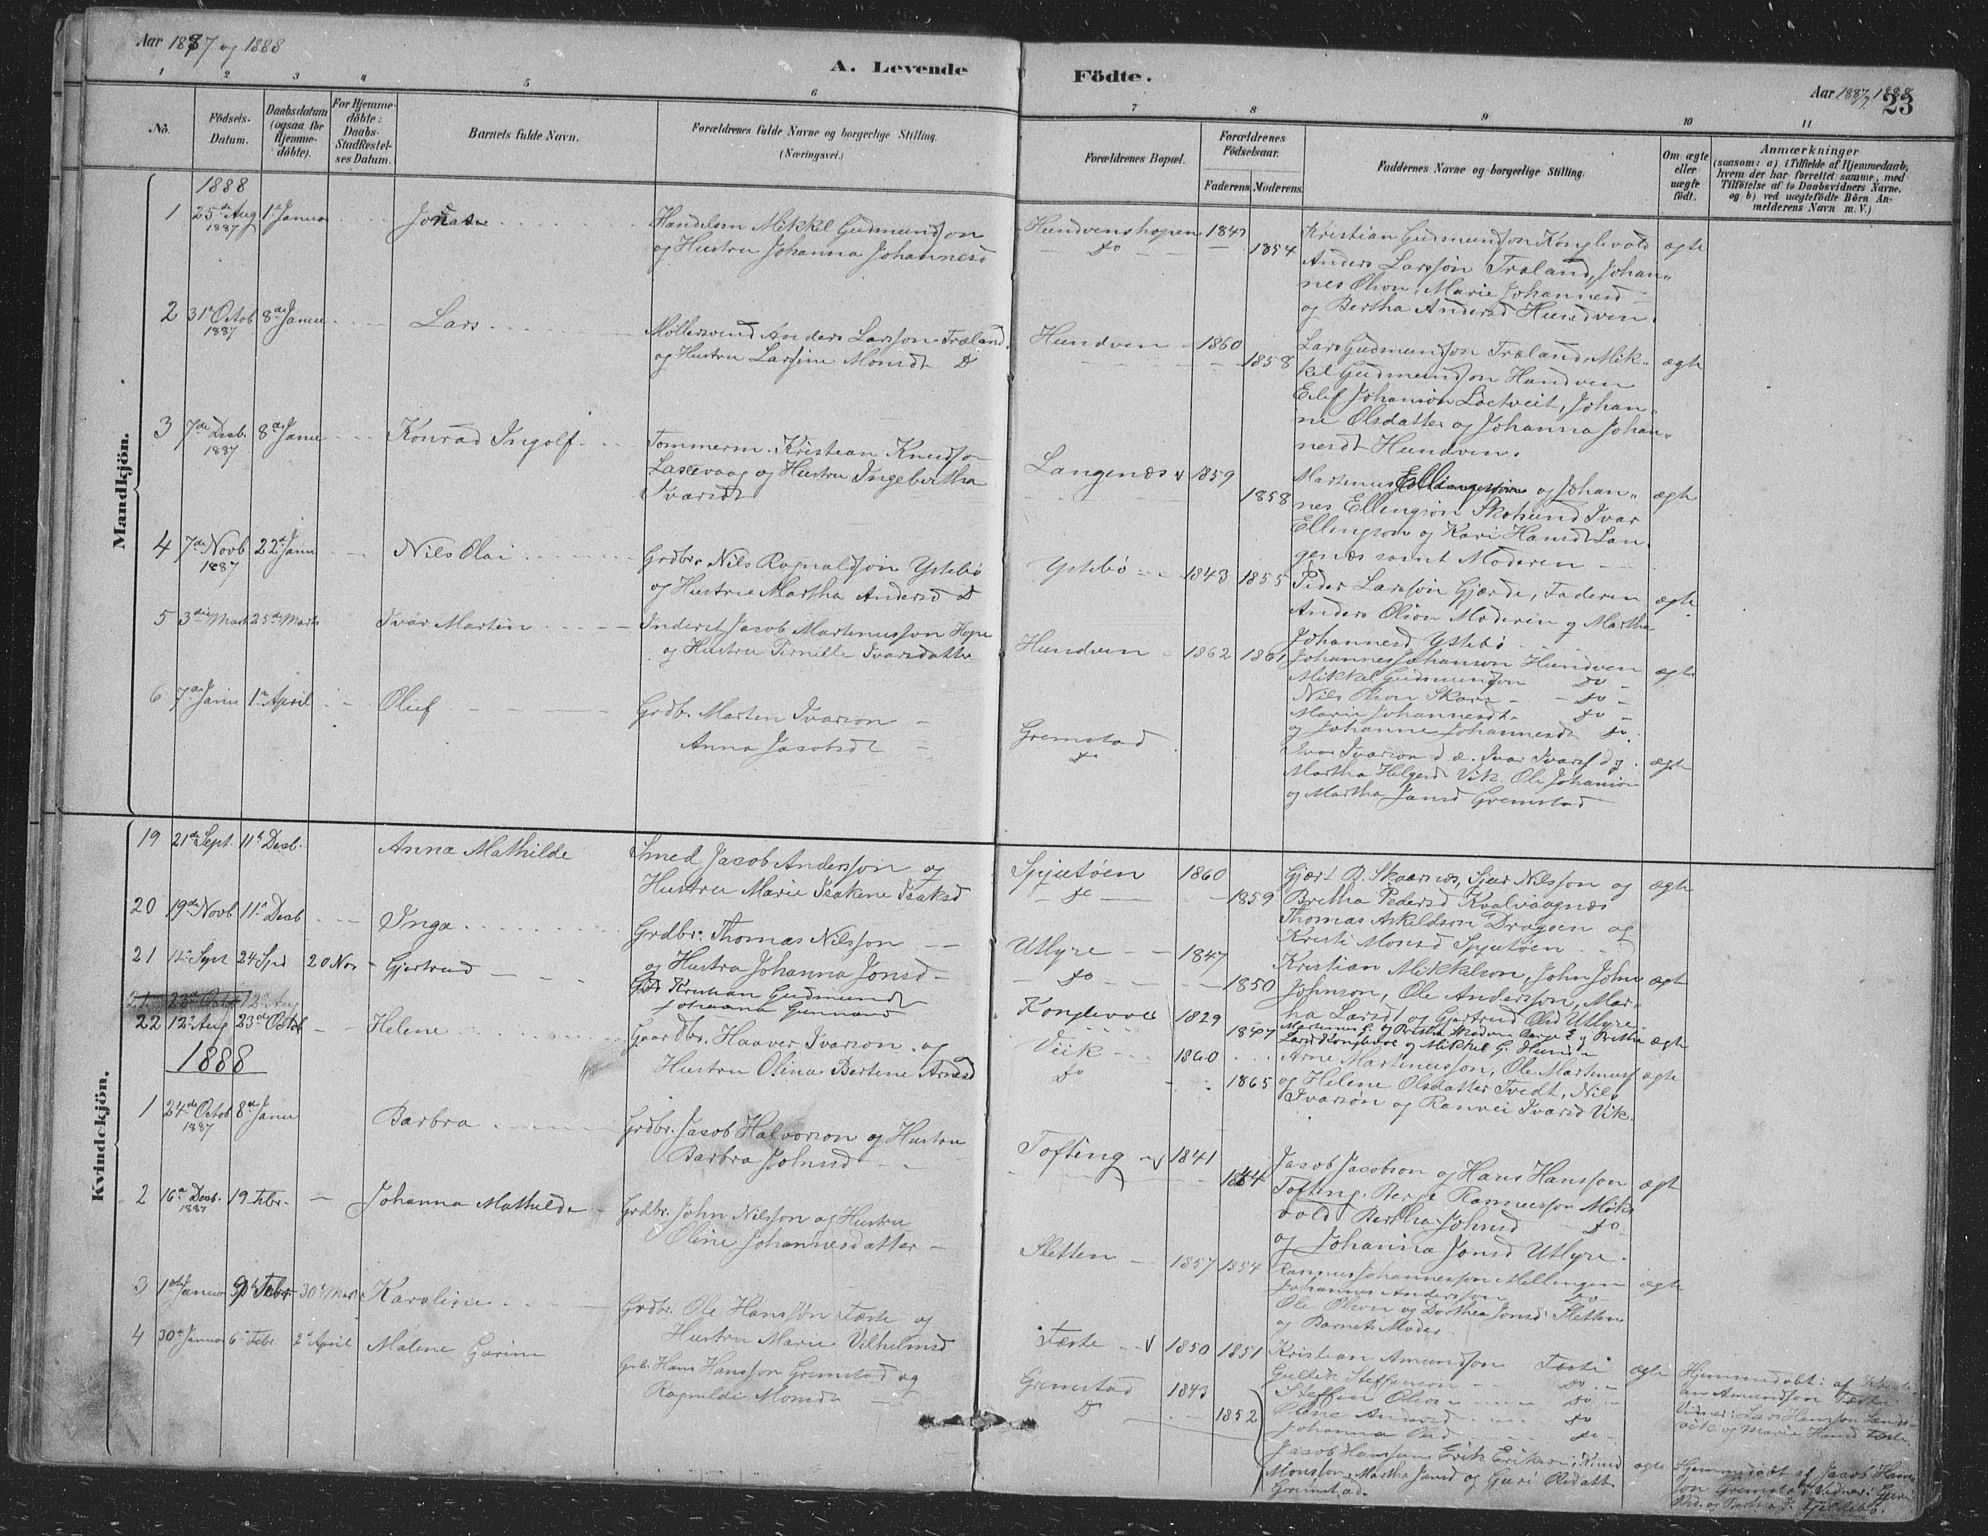 Aar 1887 og 1888
A. Levende Födte.
Aar 1887, 1888
23
1 2 3 4 5 6 7 8 9 10 11
No.
Födsels-
Datum.
Daabsdatum
(ogsaa for
Hjemme-
döbte).
For Hjemme-
döbte:
Daabs-
Stadfæstel-
ses Datum.
Barnets fulde Navn.
Forældrenes fulde Navne og borgerlige Stilling.
(Næringsvei.)
Forældrenes Bopæl.
Forældrenes
Födselsaar.
Faderens. Moderens.
Faddernes Navne og borgerlige Stilling.
Om ægte
eller
uægte
född.
Anmærkninger
(saasom: a) i Tilfælde af Hjemmedaab,
hvem der har forrettet samme, med
Tilföielse af to Daabsvidners Navne.
og b) ved uægtefödte Börn An-
melderens Navn m. V.)
Mandkjön.
1888
1 25de Aug 1887 1ste Januar
Handelsm Mikkel Gudmundson
og Hustru Johanna Johannesd
Hundvenshopen
do 1854
Kristian Gudmundson Konglevold
Anders Larssön Træland, Johan-
nes Olson, Marie Johannesd
og Bertha Andersd Hundven.
ægte
2 31te Octob 1887 8de Janu Lars
Möllersvend Anders Larsson Træland
og Hustru Larsine Monsd D
Hundven 1860
1858
Lars Gudmundson Træland, Mik-
kel Gudmundson Hundven
Eilif Johanson Loctveit, Johan-
ne Olsdatter og Johanna Johan-
nesdt Hundven.
ægte
3 7de Desb. 1887 8de Janu Konrad Ingolf
Tommerm. Kristian Knudson
Laxevaag og Hustru Ingebertha
Ivarsdt
Langenæs 1859
1858
Martinus Ellingsön og Johan-
nes Ellingsön Skolund Ivar
Ellingson og Kari Hansdt Lan-
genæs samt Moderen
ægte
4 7de Novb 1887 22de Janu Nils Olai
Grdbr. Nils Rognaldson Ystebö
og Hustru Martha Andersd D
Ystebö 1843 1855
Peder Larsson Gjærde, Faderen
Anders Olson Moderen og Martha
Johannesd Ystebö
ægte
5 3die Mart 25de Marts Ivar Martin
Inderst Jacob Martinusson Hope
og Hustru Pernille Ivarsdatter
Hundven 1862 1861
Johannes Johanson Hundven
Mikkel Gudmundson do
Nils Olson Skare do
Marie Johannesdt do
og Johanne Johannesdt do.
ægte
6 7de Janu 1ste April Oluf
Grdb. Marten Ivarson
Anna Jacobsdt
Gremstad
do
Ivar Ivarson d. æ. Ivar Ivars d. y.
Martha Helgesd Vik Ole Johanson
og Martha Jansd Gremstad
ægte
Kvindekjön.
19 21de Sept 11te Desb. Anna Mathilde
Smed Jacob Andersson og
Hustru Marie Isakene Isaksd
Spjutöen 1860
do 1859
Gjert B. Skaarnes, Sjur Nilsson og
Bertha Pedersd Kvalvaagnæs
Thomas Askildson Dragöen og
Kristi Monsd Spjutöen
ægte
20 19de Novb 11te Desb Inga
Grdbr. Thomas Nilsson
og Hustru Johanna Jonsd
Utlyre 1847
do 1850
Kristian Mikkelson, John John
Johnson, Ole Andersson, Mar-
tha Larsdt og Gjertrud Olsd Utlyre
ægte
21 11te Sept 24 Spd 20 Nov Gjertrud
Gdb Kristian Gudmundst
Johanna Gunnard
Konglevold 1829
1847
Martinus G. og Bertha Skodven Børge E og Bertha
Larsd Konglevol og Mikkel G. Hund-
ægte
22 12te Aug 23de Octob Helene
Gaardbr. Haaver Ivarson og
Hustru Olina Bertine Arnesd
Viik 1860
do 1865
Arne Martinusson, Ole Martinuss
og Helene Olsdatter Tvedt, Nils
Ivarsön og Ranvei Ivarsd Vik.
ægte
1888
1 24de Octob 1887 8de Janu Barbra
Grdbr. Jacob Halvorson og Hustru
Barbra Johnsd
Tofting 1841
1844
Jacob Jacobson og Hans Hansson
Tofting. Berge Rasmusson Mjøk
vold Bertha Johnsd do
og Johanna Jonsd Utlyre.
ægte
2 16de Desb. 1887 19 Febr. Johanna Mathilde
Grdbr. John Nilsson og Hustru
Oline Johannesdatter
Sletten 1857 1854
Rasmus Johannesson Mellingen
Johannes Andersson do
Ole Olson og Dorthea Jonsd Sletten
og Barnets Moder.
ægte
3 1ste Januar 9de Febr 30te Marts Karoline
Grdbr. Ole Hanssön Fæste og
Hustru Marie Vilhelmsd
Fæste 1850 1851
Kristian Amundson Fæste
Gullik Steffenson do
Steffen Olson do
Oline Andersd do
Johanna Olsd do
ægte
Hjemmedöbt: af Kristi-
an Amundson Fæste
Vidner: Lars Hansson Lands-
vik og Marie Hansd Fæste
4 30te Januar 6te Febr. 2de April Malene Gurine
Grb. Hans Hansson Gremstad og
Ragnilde Monsdt
Gremstad 1843
do 1852
Jacob Hansson, Erik Erikson, Knud
Monsson, Martha Jansd og Guri Olsdatt
Gremstad.
ægte
Hjemmedöbt af Jacob Hans-
son Gremstad Vidner: Guri